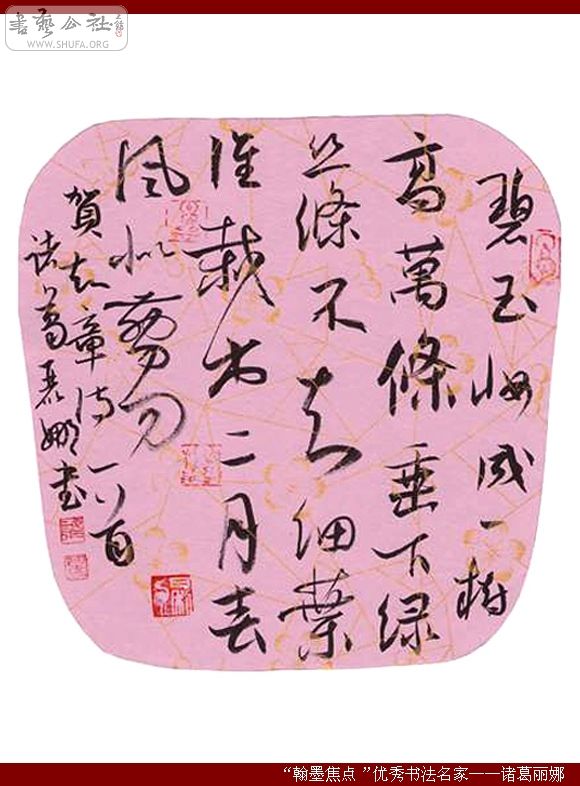 書藝公社
WWW.SHUFA.ORG
碧玉妝成一樹
高萬條垂下绿
丝絛不知细葉
谁裁出二月春
風似剪刀
賀知章诗一首
诸葛丽娜书
“翰墨焦点 ”优秀书法名家——诸葛丽娜